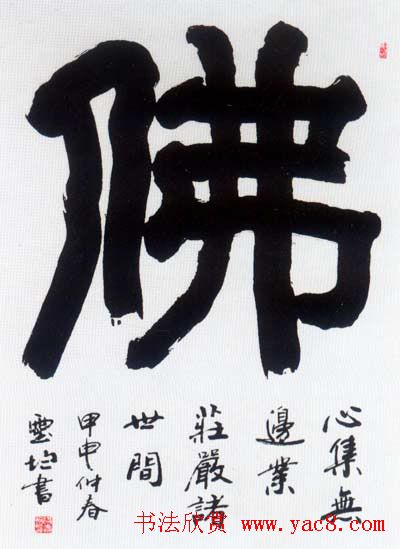 佛
心集無
邊業
莊嚴諸
世間
甲申仲春
書
书法欣赏 www.yac8.com